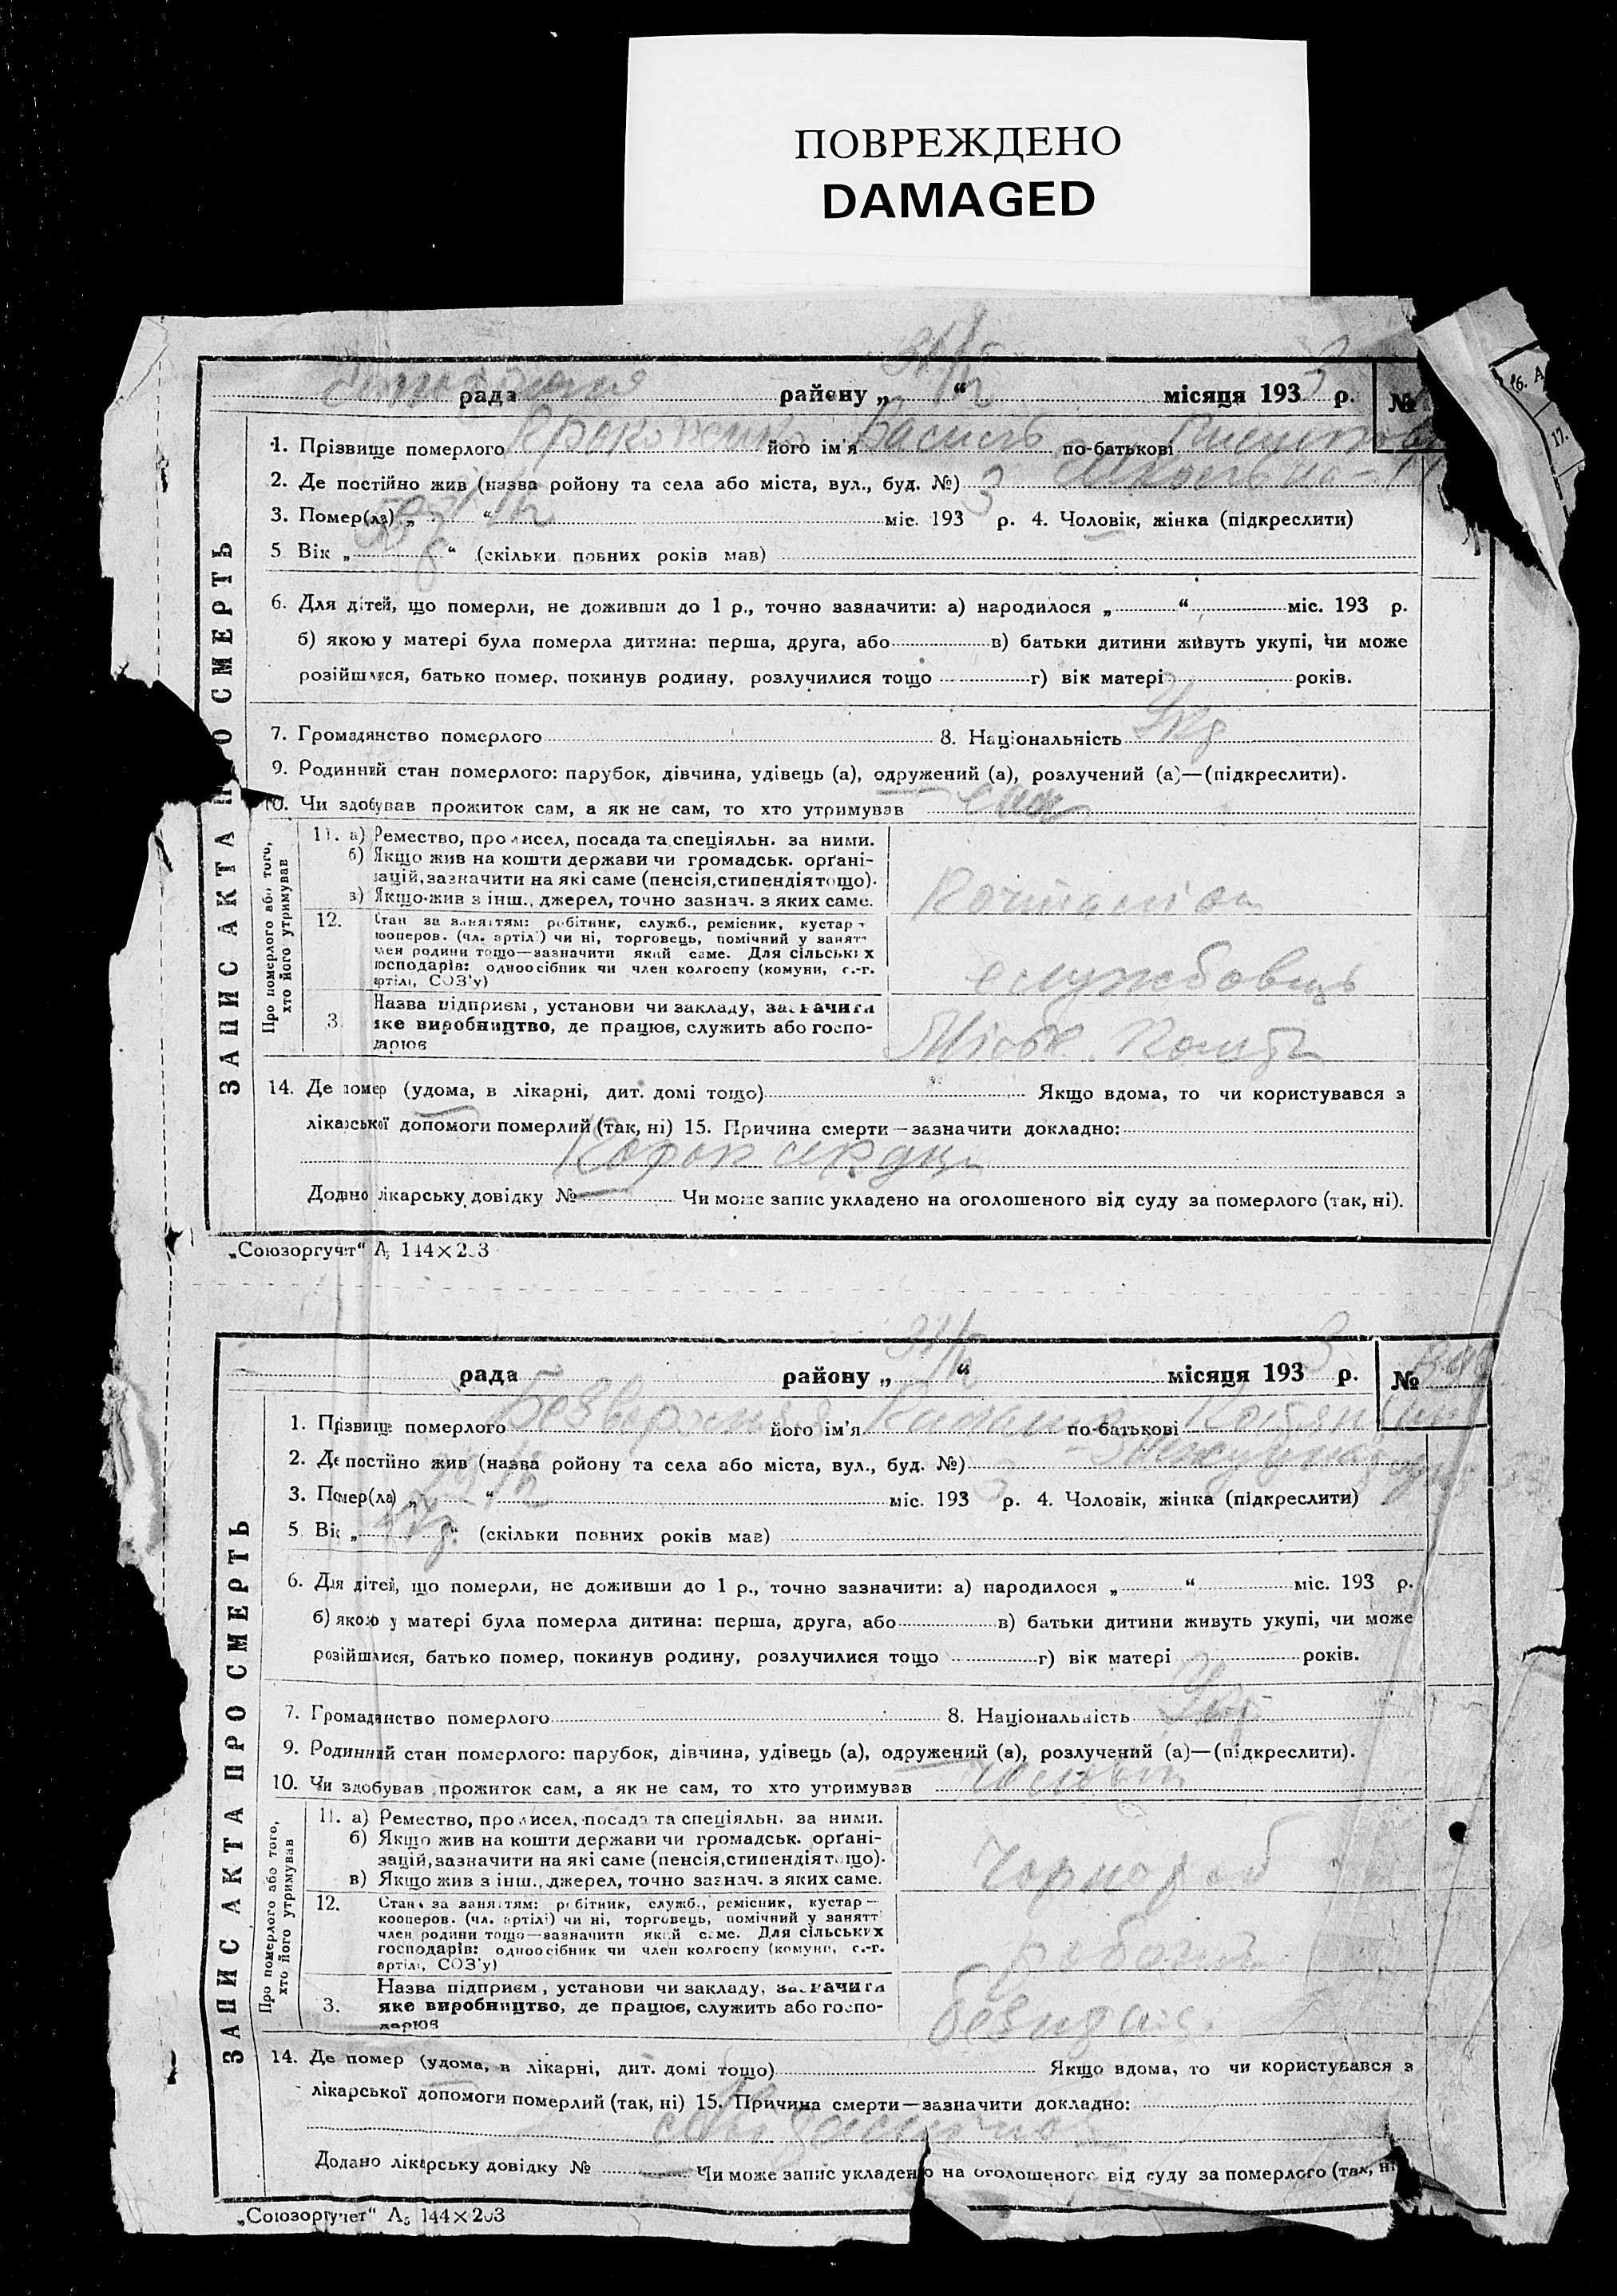 ПОВРЕЖДЕНО
DAMAGED
31/V
рада району „ “ місяця 193 3 р. №
1. Прізвище померлого його ім'я Василь по-батькові
2. Де постійно жив (назва ройону та села або міста, вул., буд. №)
3. Помер(ла) „ “ міс. 193 3 р. 4. Чоловік, жінка (підкреслити)
5 Вік „ “ (скільки повних років мав)
6. Для дітей, що померли, не доживши до 1 р., точно зазначити: а) народилося „ “ міс. 193 р.
б) якою у матері була померла дитина: перша, друга, або в) батьки дитини живуть укупі, чи може
розійшлися, батько помер, покинув родину, розлучилися тощо г) вік матері років.
7. Громадянство померлого 8. Національність Укр
9. Родинний стан померлого: парубок, дівчина, удівець (а), одружений (а), розлучений (а)—(підкреслити).
10. Чи здобував прожиток сам, а як не сам, то хто утримував сам
11. а) Ремество, промисел, посада та спеціяльн. за ними.
б) Якщо жив на кошти держави чи громадськ. орґані-
зацій, зазначити на які саме (пенсія, стипендія тощо).
в) Якщо жив з інш., джерел, точно зазнач. з яких саме.
12. Стан за заняттям: робітник, служб., ремісник, кустар —
кооперов. (чл. артілі) чи ні, торговець, помічний у занятт
член родини тощо—зазначити який саме. Для сільських
господарів: одноосібник чи член колгоспу (комуни, с.-г.
артілі, СОЗ'у)
службовець
3. Назва підприєм, установи чи закладу, зазначити
яке виробництво, де працює, служить або госпо-
дарює
14. Де помер (удома, в лікарні, дит. домі тощо) Якщо вдома, то чи користувався з
лікарської допомоги померлий (так, ні) 15. Причина смерти—зазначити докладно:
Порок сердця
Додано лікарську довідку № Чи може запис укладено на оголошеного від суду за померлого (так, ні).
ЗАПИС АКТА ПРО СМЕРТЬ
Про померлого або того, хто його утримував
16. А
17.
„Союзоргучет“ А5 144×203
31/V
рада району „ “ місяця 193 3 р. №
1. Прізвище померлого його ім'я по-батькові
2. Де постійно жив (назва ройону та села або міста, вул., буд. №)
3. Помер(ла) „ “ міс. 193 3 р. 4. Чоловік, жінка (підкреслити)
5 Вік „ “ (скільки повних років мав)
6. Для дітей, що померли, не доживши до 1 р., точно зазначити: а) народилося „ “ міс. 193 р.
б) якою у матері була померла дитина: перша, друга, або в) батьки дитини живуть укупі, чи може
розійшлися, батько помер, покинув родину, розлучилися тощо г) вік матері років.
7. Громадянство померлого 8. Національність Укр
9. Родинний стан померлого: парубок, дівчина, удівець (а), одружений (а), розлучений (а)—(підкреслити).
10. Чи здобував прожиток сам, а як не сам, то хто утримував
11. а) Ремество, промисел, посада та спеціяльн. за ними.
б) Якщо жив на кошти держави чи громадськ. орґані-
зацій, зазначити на які саме (пенсія, стипендія тощо).
в) Якщо жив з інш., джерел, точно зазнач. з яких саме.
Чорнороб
12. Стан за заняттям: робітник, служб., ремісник, кустар —
кооперов. (чл. артілі) чи ні, торговець, помічний у занятт
член родини тощо—зазначити який саме. Для сільських
господарів: одноосібник чи член колгоспу (комуни, с.-г.
артілі, СОЗ'у)
3. Назва підприєм, установи чи закладу, зазначити
яке виробництво, де працює, служить або госпо-
дарює
14. Де помер (удома, в лікарні, дит. домі тощо) Якщо вдома, то чи користувався з
лікарської допомоги померлий (так, ні) 15. Причина смерти—зазначити докладно:
Додано лікарську довідку № Чи може запис укладено на оголошеного від суду за померлого (так, ні
ЗАПИС АКТА ПРО СМЕРТЬ
Про померлого або того, хто його утримував
„Союзоргучет“ А5 144×203